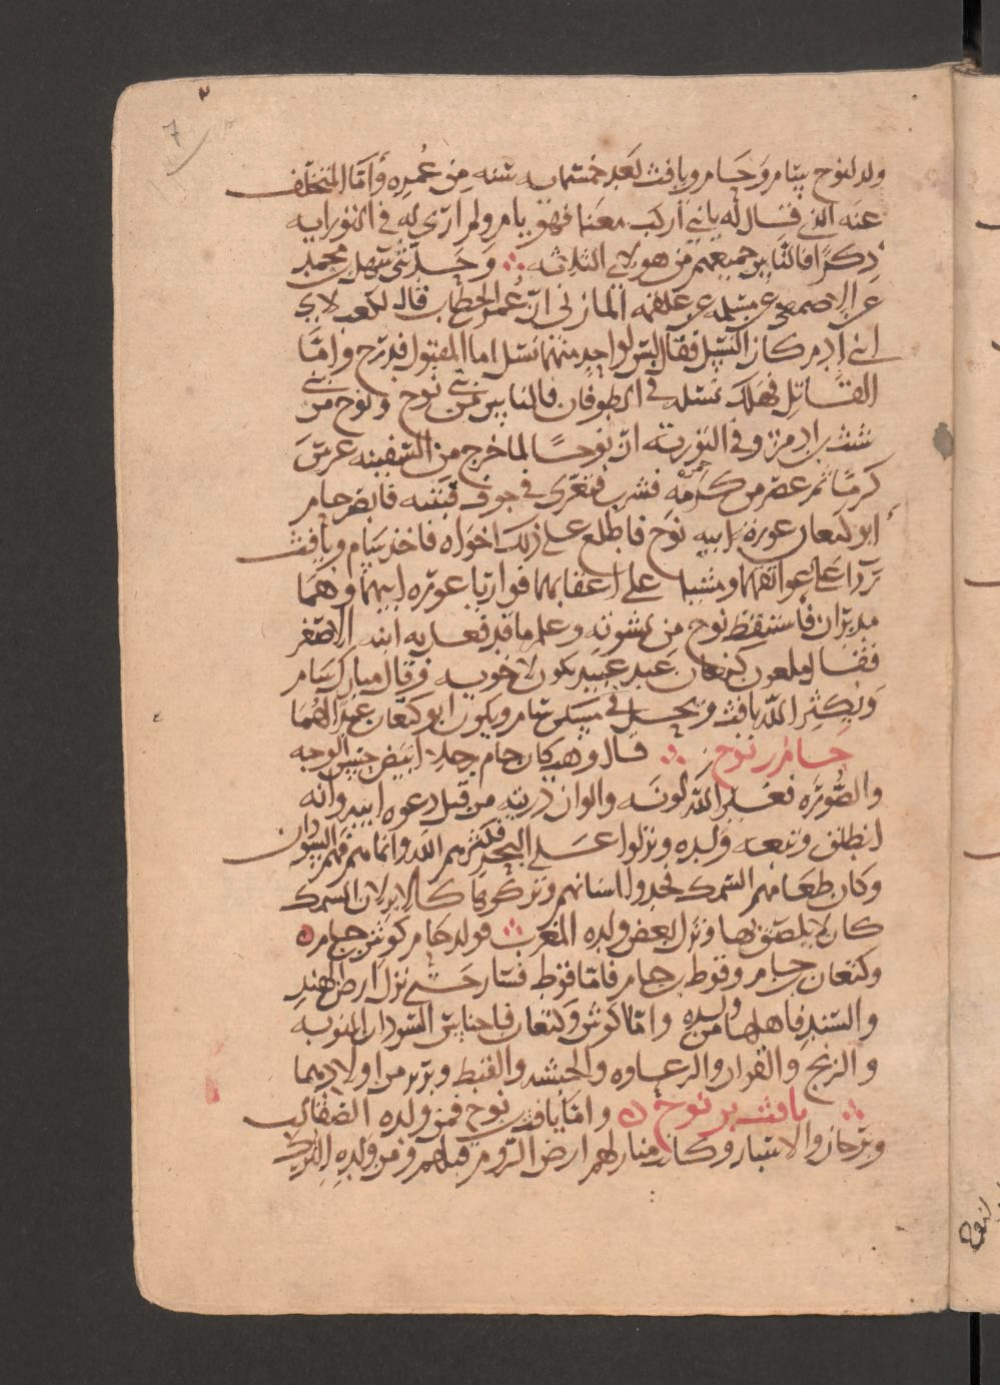 7
ولد لنوح سام وحام ويافث بعد خمسمايه سنه من عمره وأما المتخلف
عنه الذي قال له يابني اركب معنا فهو يام ولم ار له في التورايه
ذكرًا فالناس جميعهم من هولاي الثلاثه ⁘ وحدثني سهل بن محمد
عن الاصمعي عن مسلمه بن علقمه المازني ان عمر بن الخطاب قال لكعب لاي
ابني ادم كان النسل فقال ليس لواحد منهما نسل اما المقتول فدرج وامّا
القاتل فهلك نسله في الطوفان فالناس من بني نوح ونوح من بني
شيث بن ادم وفي التوريه ان نوحًا لما خرج من السفينه غرس
كرمًا ثم عصر من كرمه خمره فشرب فتعرى في جوف قبته فابصر حام
ابو كنعان عورة ابيه نوح فاطلع على ذلك اخواه فاخذ سام ويافث
رداء على عواتقهما ومشيا على اعقابهما فواريا عوره ابيهما وهما
مدبران فاستيقظ نوح من نشوته وعلم ما قد فعل به ابنه الاصغر
فقال ملعون كنعان عبد عبيد يكون لاخويه وقال مبارك سام
ويكثر الله يافث ويحل في مسكن سام ويكون ابو كنعان عبدًا لهما
حام بن نوح ⁘ قال وهب كان حام رجلا ابيض حسن الوجه
والصوره فغير الله لونه والوان ذريته من قبل دعوه ابيه وانه
انطلق وتبعه ولده ونزلوا على البحر فكثرهم الله وانماهم فهم السودان
وكان طعامهم السمك فحددوا اسنانهم وتركوها كالابر لان السمك
كان لا يلصق بها ونزل بعض ولده المغرب ⁘ فولد حام كوش بن حام
وكنعان بن حام وقوط بن حام فاما قوط فسار حتى نزل ارض الهند
والسند فاهلها من ولده واما كوش وكنعان فاجناس السودان النوبه
والزنج والقران والزغاوه والحبشه والقبط وبربر من اولادهما
⁘ يافث بن نوح واما يافث بن نوح فمن ولده الصقالب
وبرجان والاشبان وكان منازلهم ارض الروم قبل الروم ومن ولده الترك